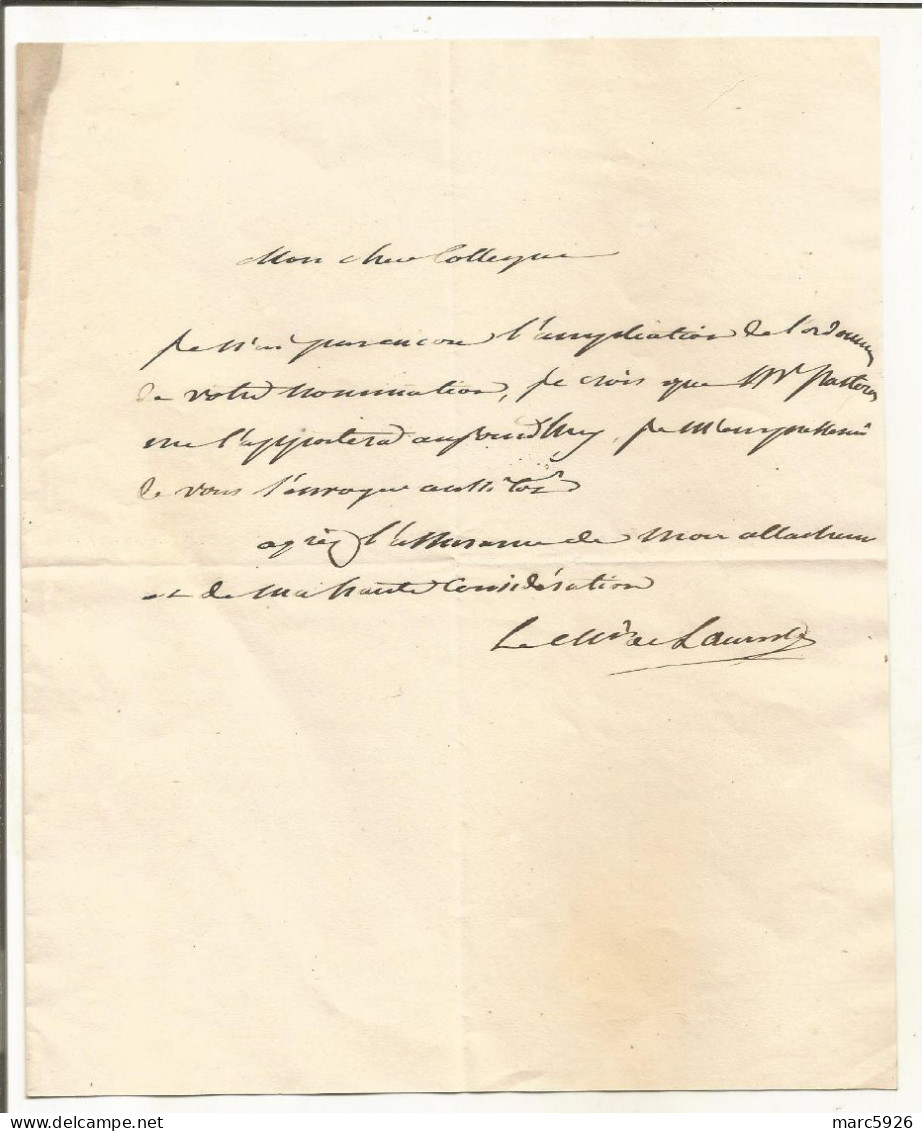 Mon cher Collegue
je n'ai pas encore l'ampliation de l'ordonn
de votre nomination, je crois que Mr Pastoret
me l'apportera aujourdhuy je m'empresserai
de vous l'envoyer aussitôt
agréez l'assurance de mon attachem
et de ma haute Considération
Le Mis de
marc5926